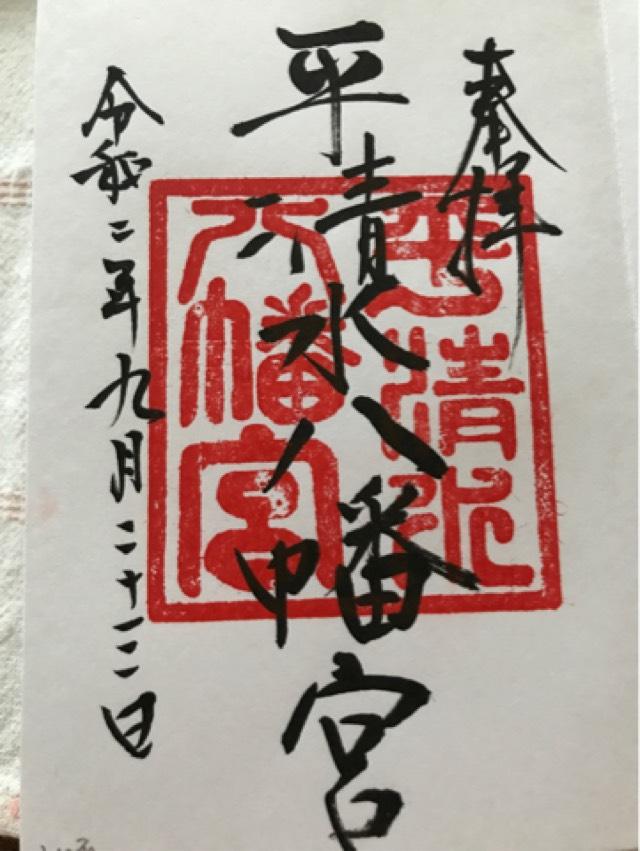 奉拝
平清水八幡宮
令和二年九月二十三日
平清水
八幡宮